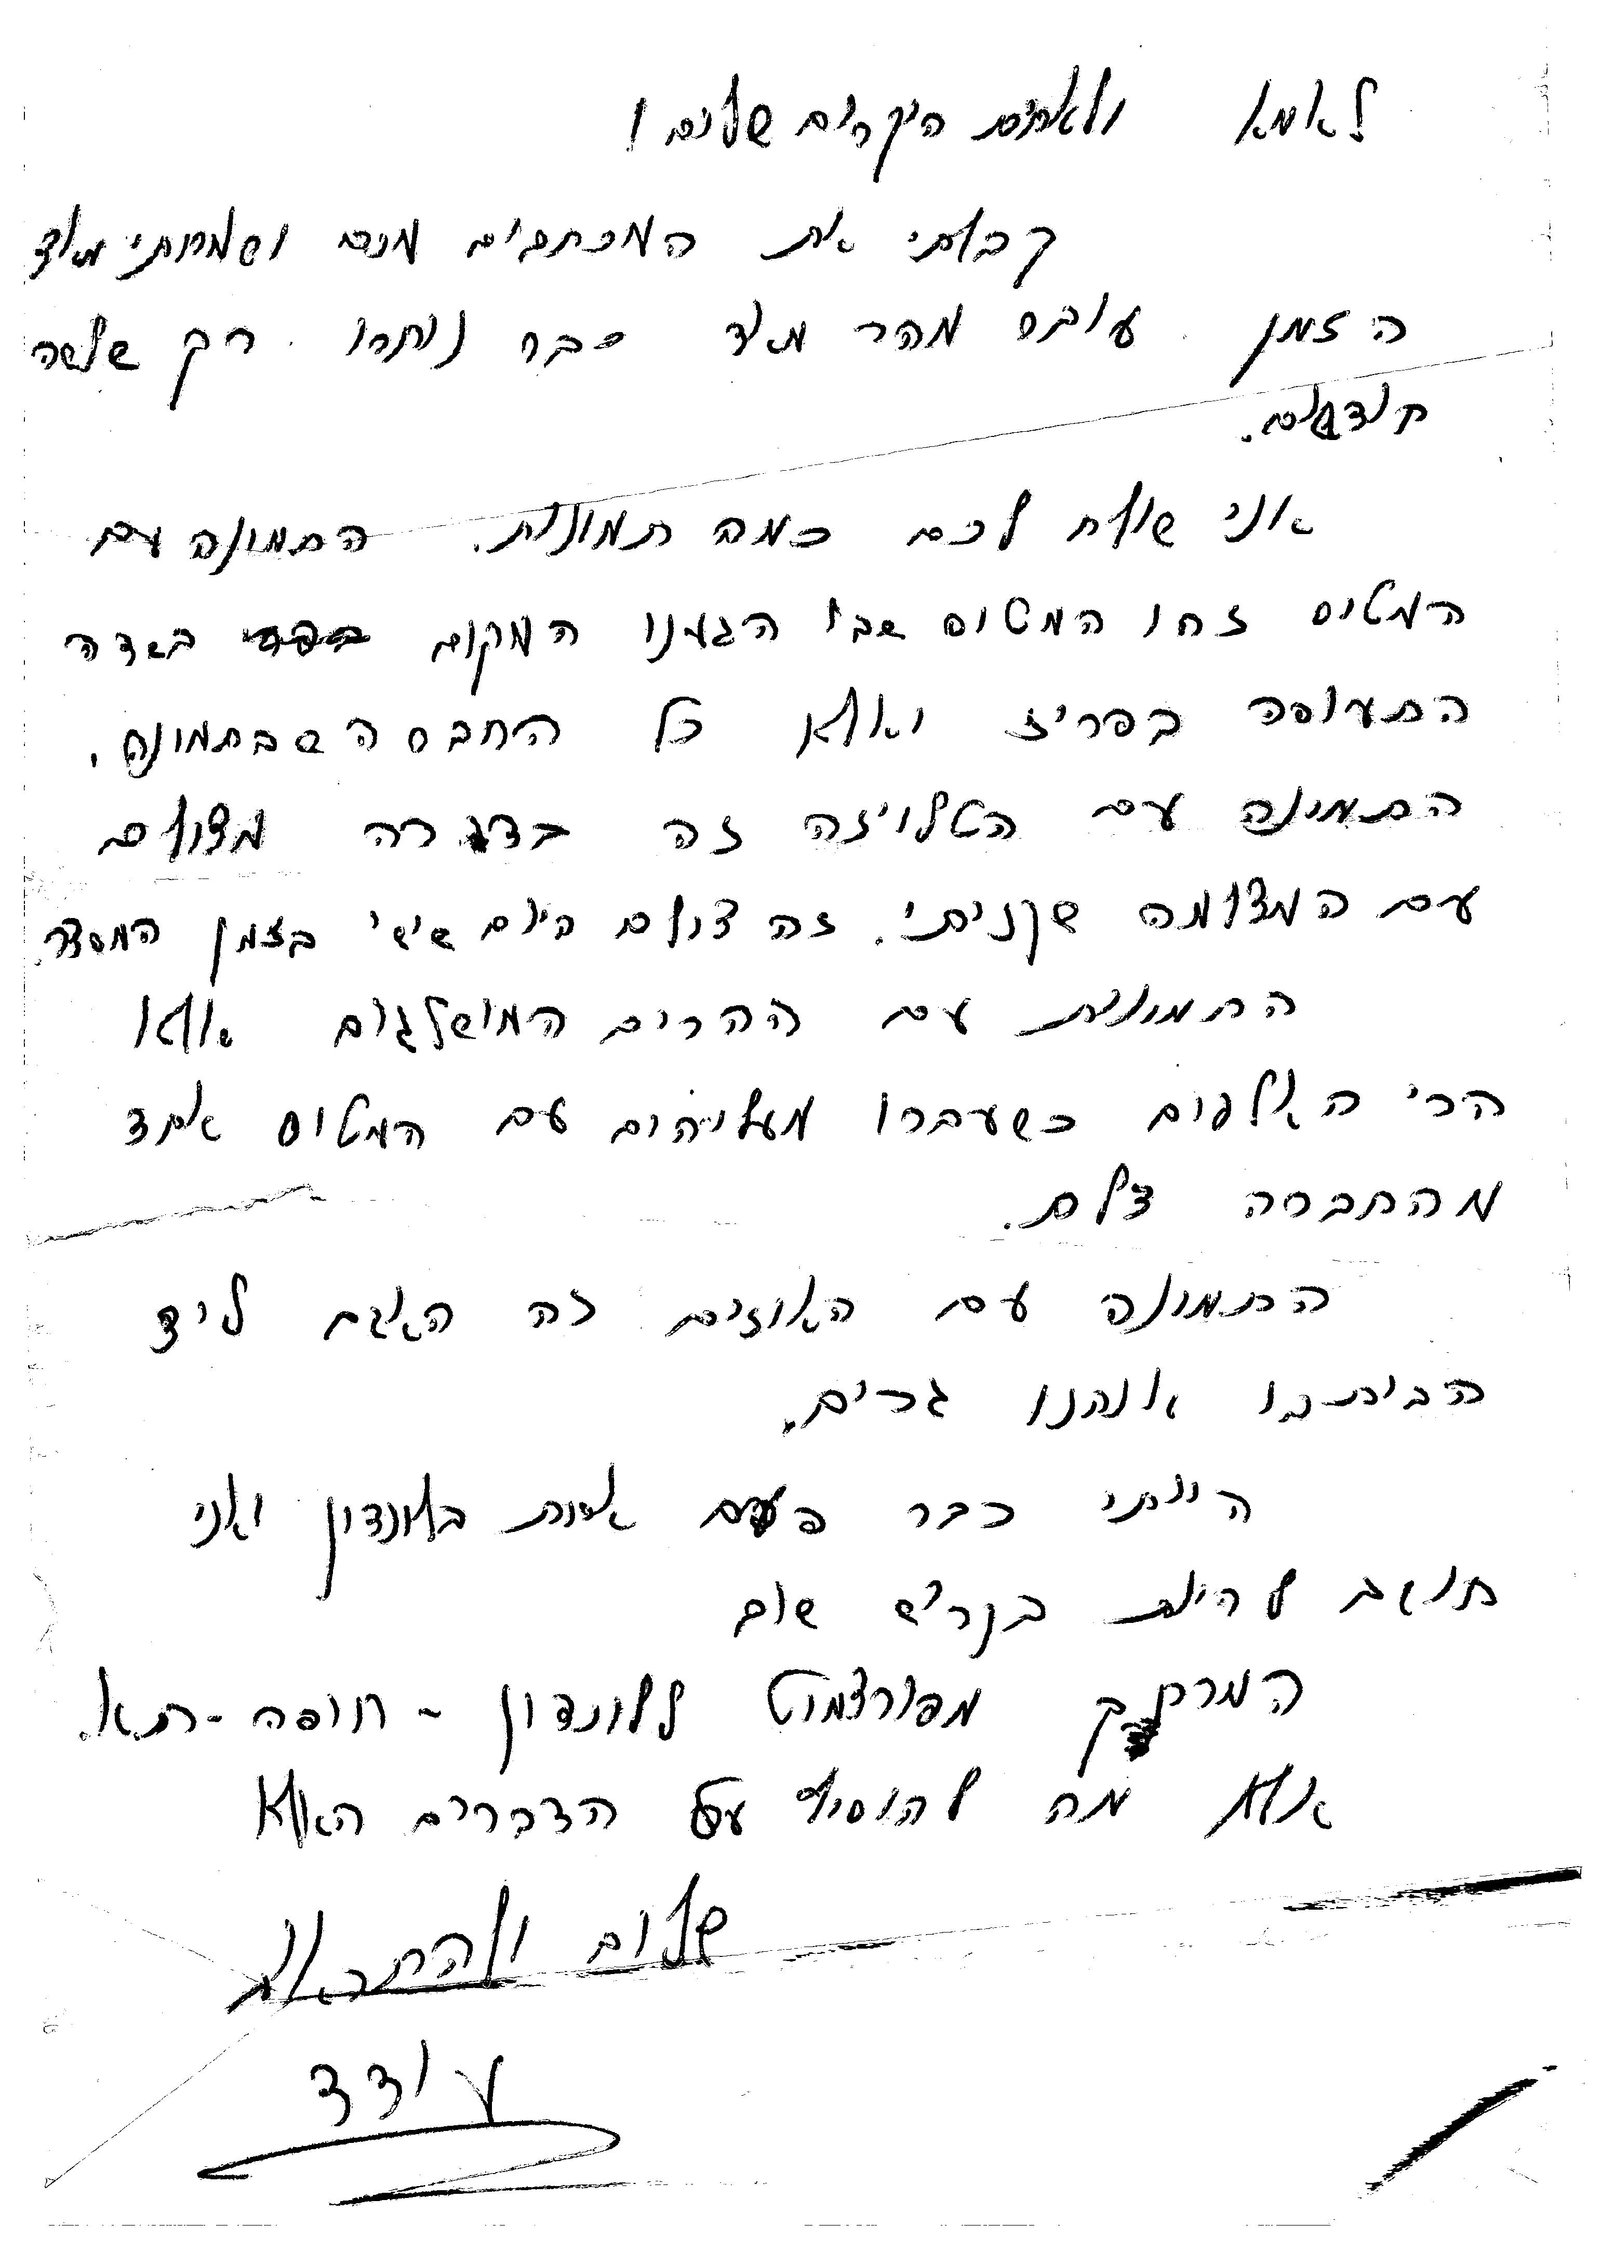 לאמא ולאחים היקרים שלום!
קבלתי את המכתבים מכם ושמחתי מאד
הזמן עובר מהר מאד כבר נותרו רק שלשה
חודשים.
אני שולח לכם כמה תמונות. התמונה עם
המטוס זהו המטוס שבו הגענו המקום בשדה
התעופה בפריז ואלא כל החברה שבתמונה.
התמונה עם הטלויזה זה בדירה מצולם
עם המצלמה שקניתי. זה צולם ביום שישי בזמן המסדר.
התמונות עם ההרים המושלגים אלא
הרי האלפים כשעברו מעליהם עם המטוס אחד
מהחברה צלם.
התמונה עם האוזים זה האגם ליד
הבית בו אנחנו גרים.
הייתי כבר פעם אחת בלונדון ואני
חושב להיות בנריש שום
המרחק מפורצמוט ללונדון - חיפה - ת.א.
אלא מה להוסיף על הדברים האלא
שלום ולהתראות
עודד